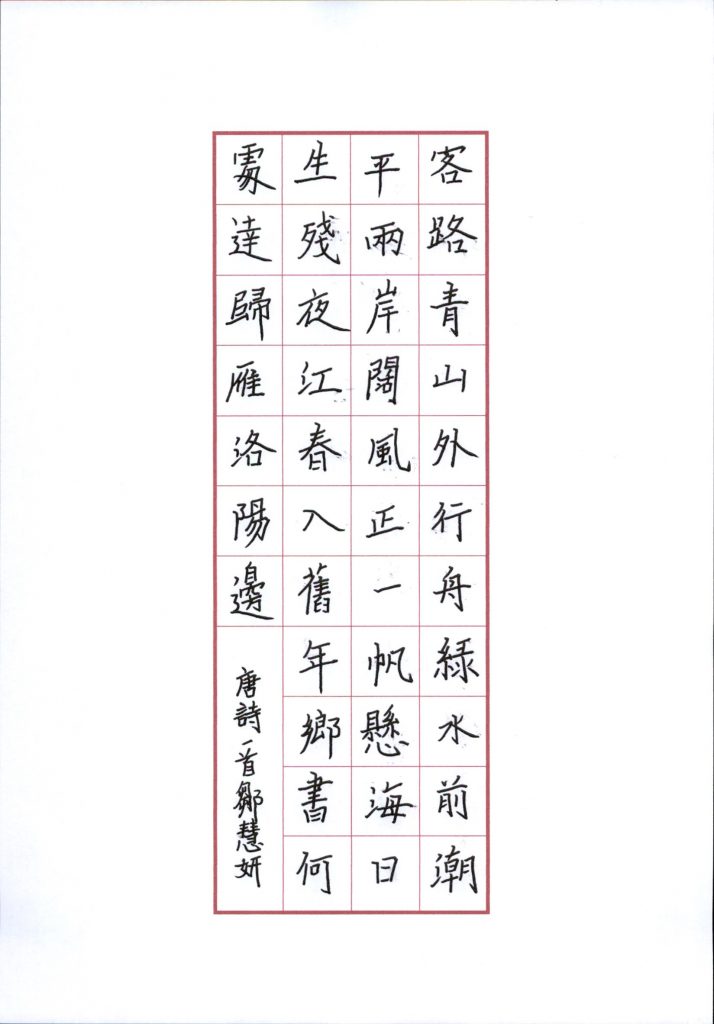 客路青山外行舟綠水前潮
平兩岸闊風正一帆懸海日
生殘夜江春入舊年鄉書何
處達歸雁洛陽邊
唐詩一首鄒慧妍